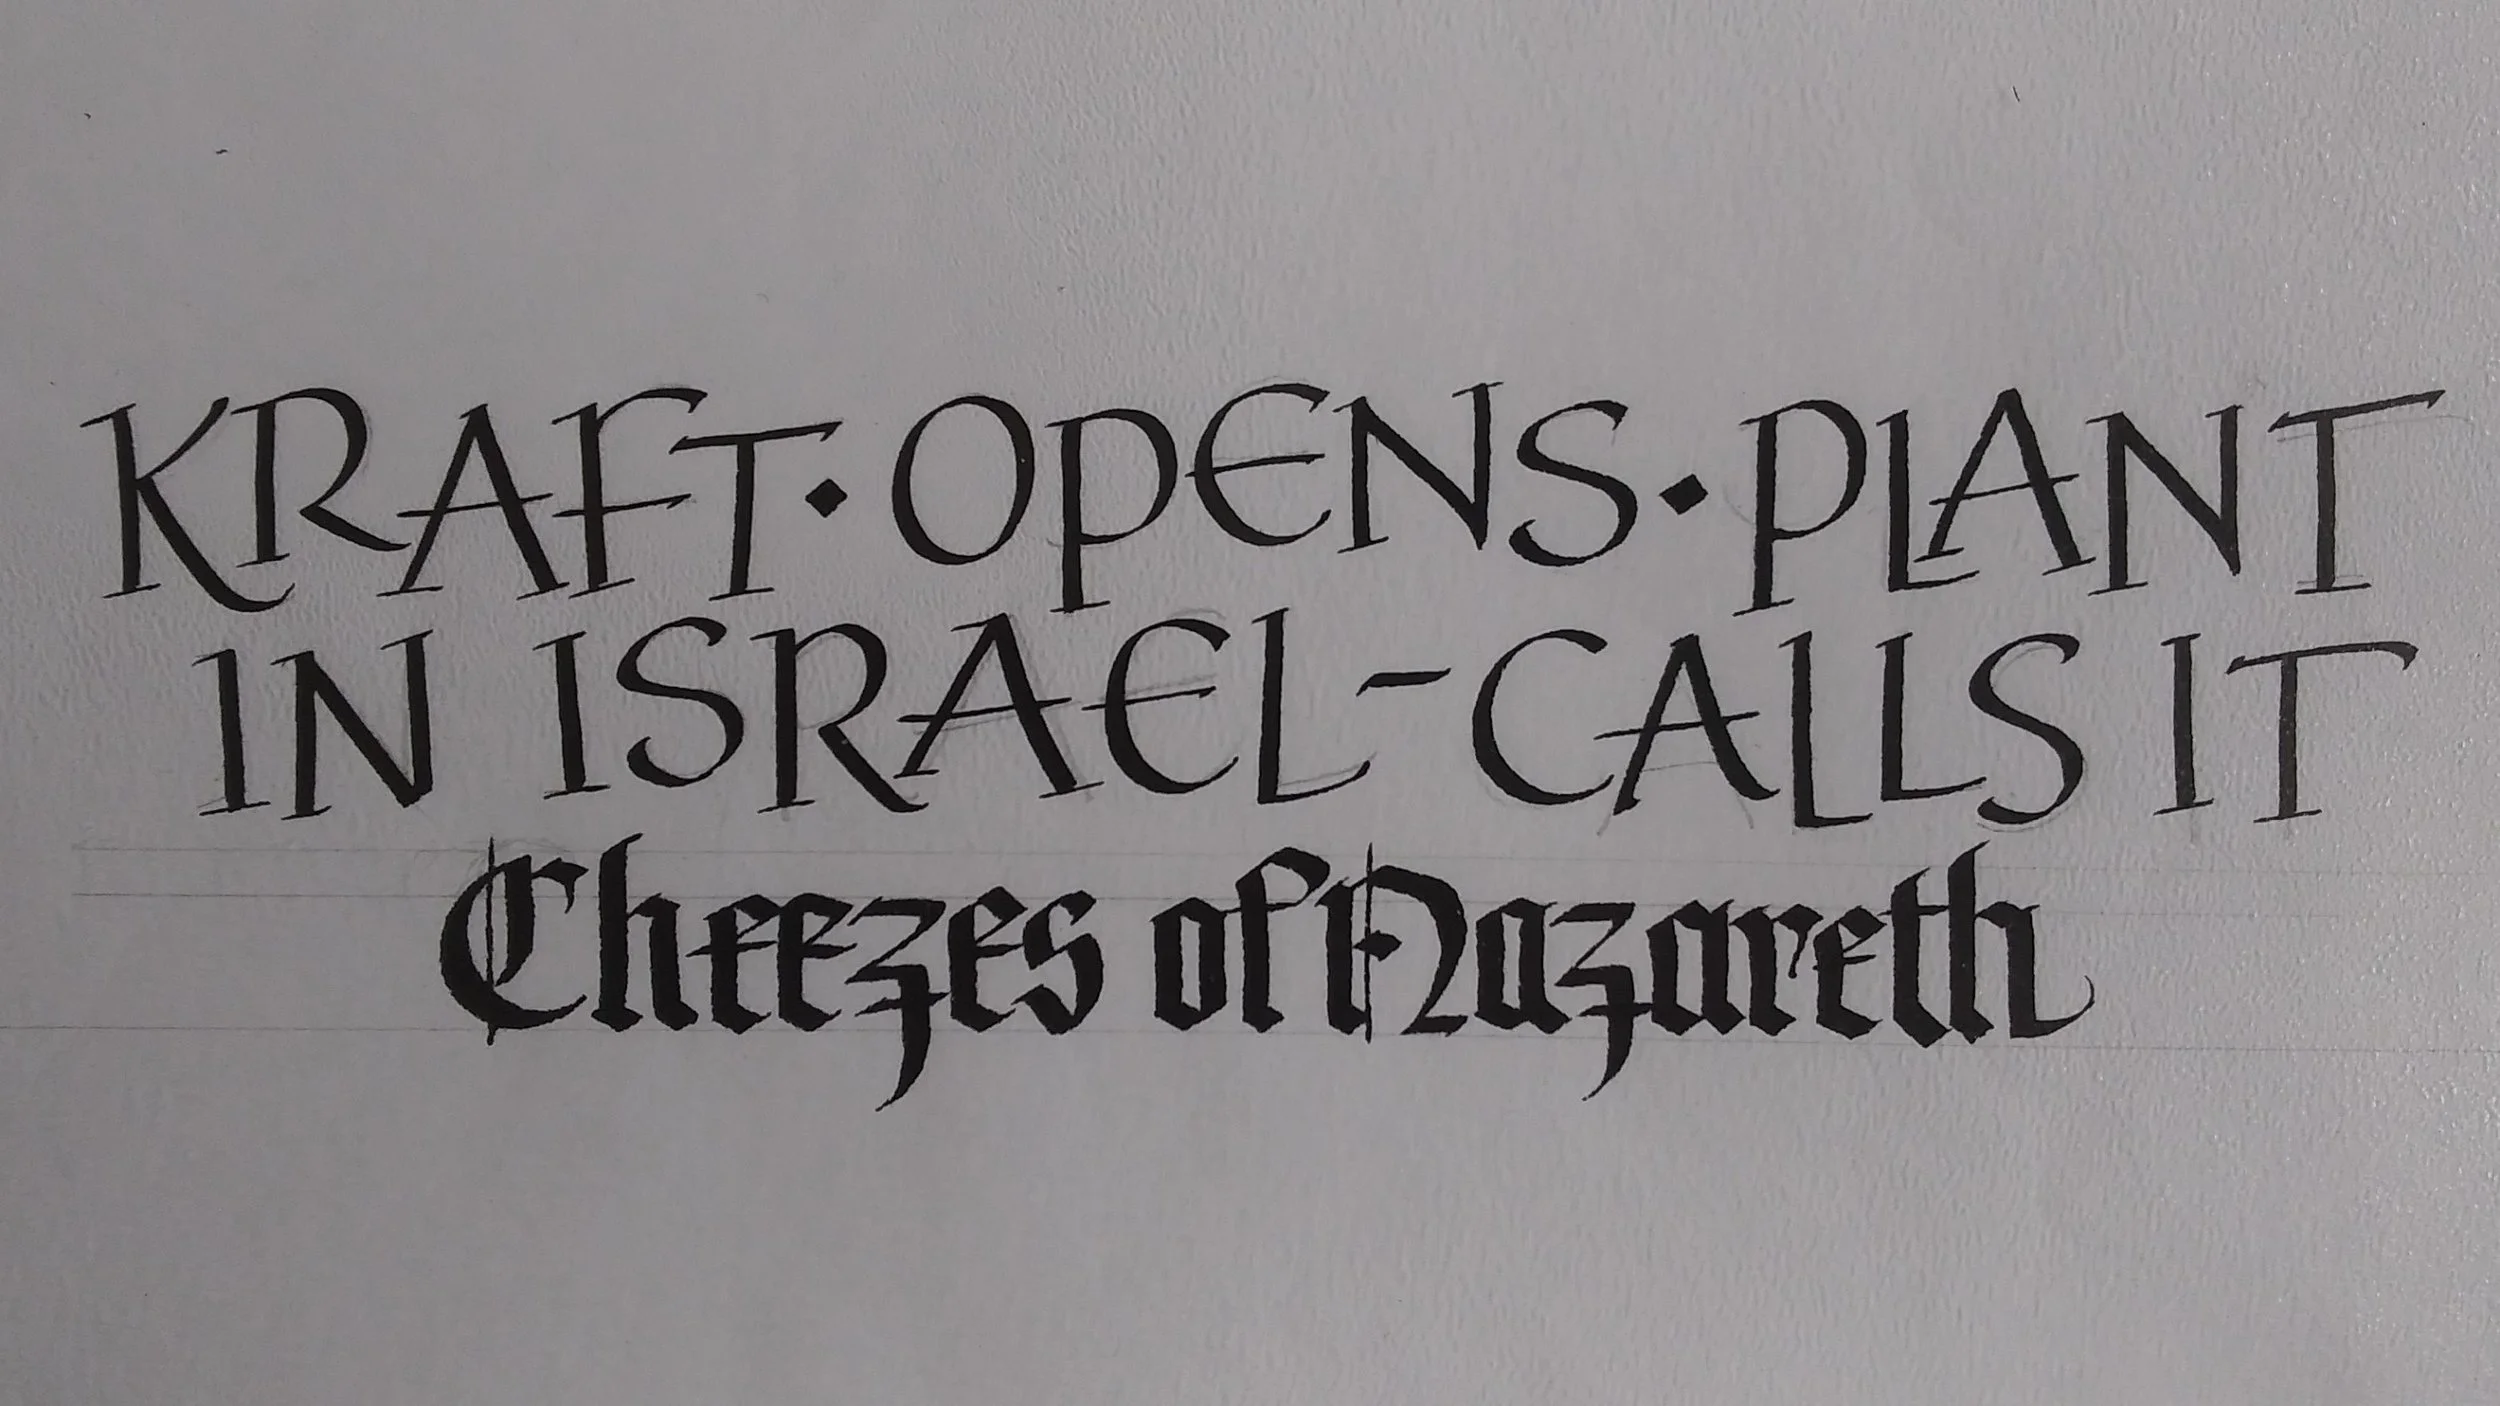 KRAFT·OPENS·PLANT
IN ISRAEL-CALLS IT
Cheezes of Nazareth